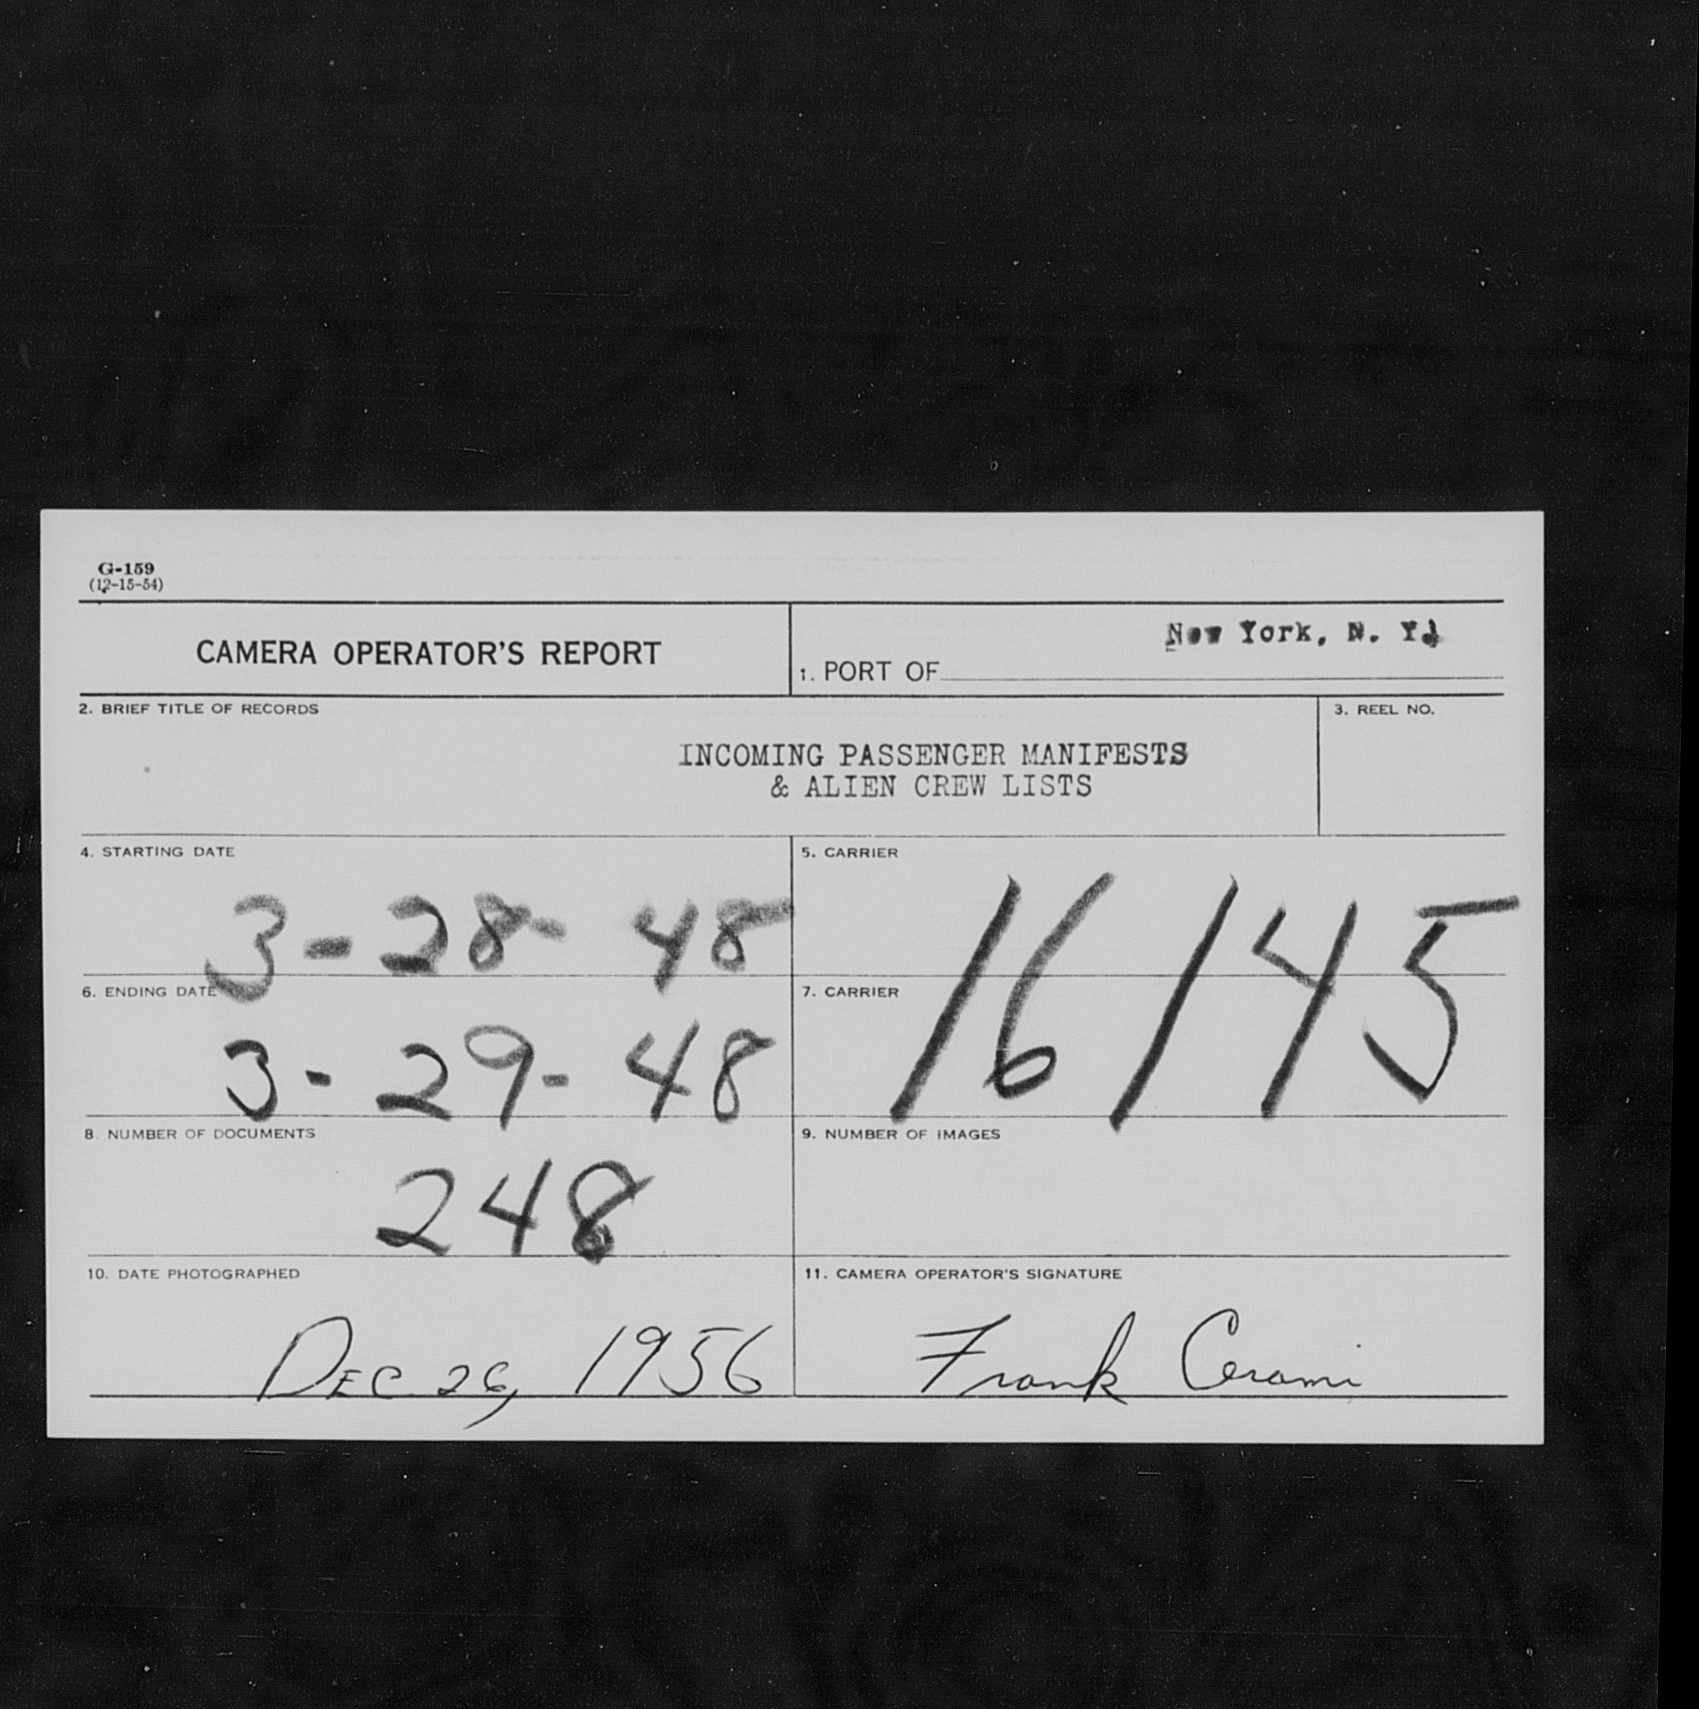 G-159
(12-15-54)
CAMERA OPERATOR'S REPORT
1. PORT OF New York, N. Y.
2. BRIEF TITLE OF RECORDS
INCOMING PASSENGER MANIFESTS
& ALIEN CREW LISTS
3. REEL NO.
4. STARTING DATE
3-28-48
5. CARRIER
16145
6. ENDING DATE
3-29-48
7. CARRIER
8. NUMBER OF DOCUMENTS
248
9. NUMBER OF IMAGES
10. DATE PHOTOGRAPHED
DEC 26, 1956
11. CAMERA OPERATOR'S SIGNATURE
Frank Cerami